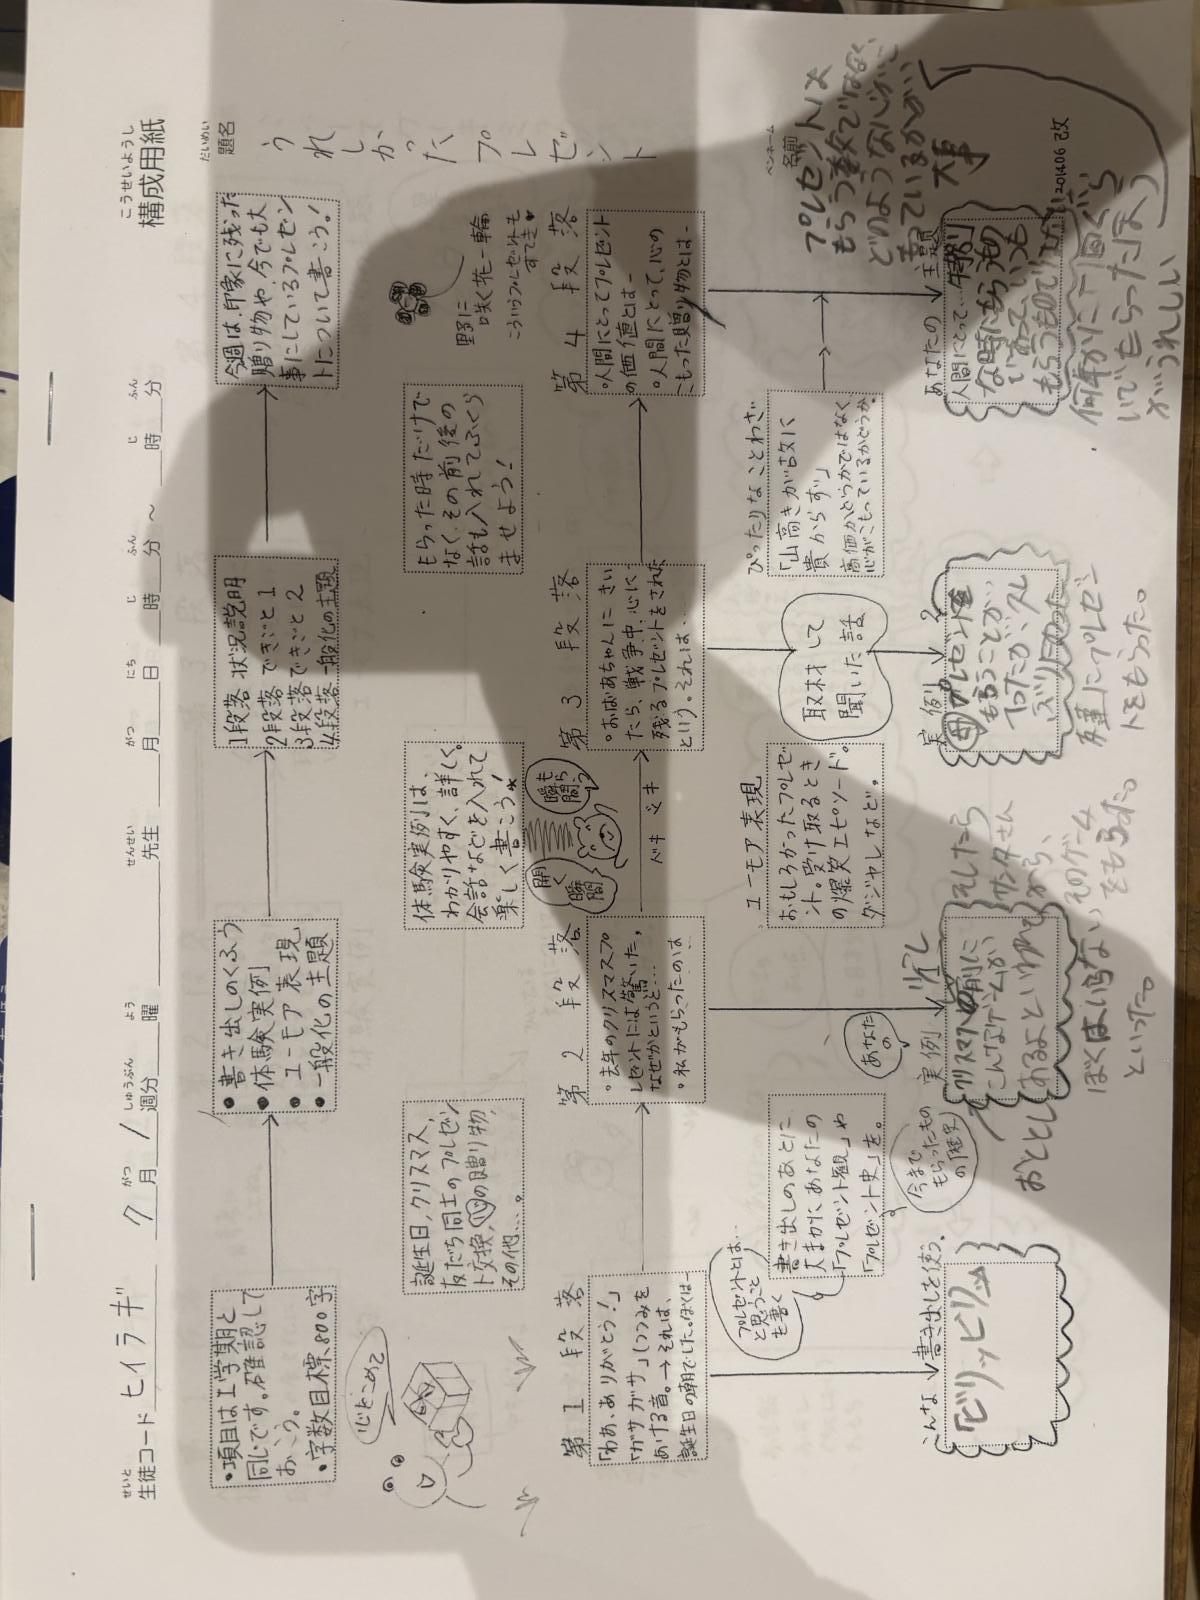 こうせいようし
構成用紙
せいと
生徒コード ヒイラギ
がつ しゅうぶん よう
7月1週分 曜
せんせい
先生
がつ にち じ ふん じ ふん
月 日 時 分 ～ 時 分
だいめい
題名
うれしかったプレゼント
・項目は1学期と
同じです。確認して
おこう。
・字数目標、800字
● 書き出しのくふう
● 体験実例
● ユーモア表現
● 一般化の主題
1段落 状況説明
2段落 できごと1
3段落 できごと2
4段落 一般化の主題
今週は、印象に残った
贈り物や、今でも大
事にしているプレゼン
トについて書こう!
心をこめて
誕生日、クリスマス、
友だち同士のプレゼン
ト交換、心の贈り物、
その他…。
体験実例は、
わかりやすく、詳しく。
会話などを入れて
楽しく書こう!
もらった時だけで
なく、その前後の
話も入れてふくら
ませよう!
野に
咲く花一輪
こういうプレゼントも
すてき
第1段落
「わあ、ありがとう!」
「ガサガサ」(つつみを
あける音。→それは、
誕生日の朝でした。ぼくは
第2段落
・去年のクリスマスプ
レゼントには驚いた。
なぜかというと…
・私がもらったのは…
開く瞬間
もらう瞬間
ドキドキ
第3段落
・おばあちゃんにきい
たら、戦争中、心に
残るプレゼントをされた
という。それは…
第4段落
・人間にとってプレゼント
の価値とは-
・人間にとって、心の
こもった贈り物とは-
プレゼントとは…
と思うこと
も書く
書き出しのあとに、
大まかにあなたの
「プレゼント観」や
「プレゼント史」を。
今まで
もらったもの
の歴史
ユーモア表現
おもしろかったプレゼ
ント。受け取るとき
の爆笑エピソード。
ダジャレなど。
取材して
聞いた話
ぴったりなことわざ
「山高きが故に
貴からず」
高価かどうかではなく、
心がこもっているかどうか。
ペンネーム
名前
プレゼントは
もらう数ではなく、
どのような心が
もっているかが
大事
201406改
こんな書き出しを使う。
「ビリッビリッ」
あなたの
実例 1
クリスマスの前に
こんなゲームが
あるよといわれて
おととし
そしたら
サンタさん
から、
そのゲーム
をもらった。
ぼくはいらない
といった。
実例 2
母 プレゼントを
もらうことが
友達にプレゼン
トをもらった。
あなたの主題
人間にとって…
な時にもらうもの
もらうもので
何年かに一回ぐら
いでもらった(方)
がうれしい